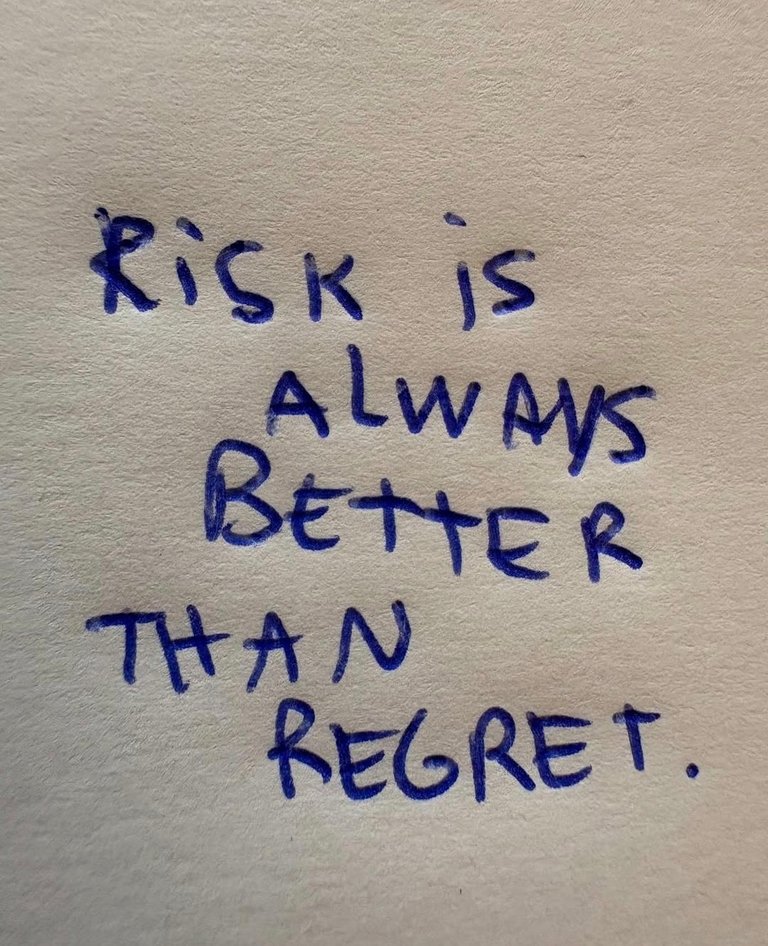 RiSK is
ALWAYS
BETTER
THAN
REGRET.